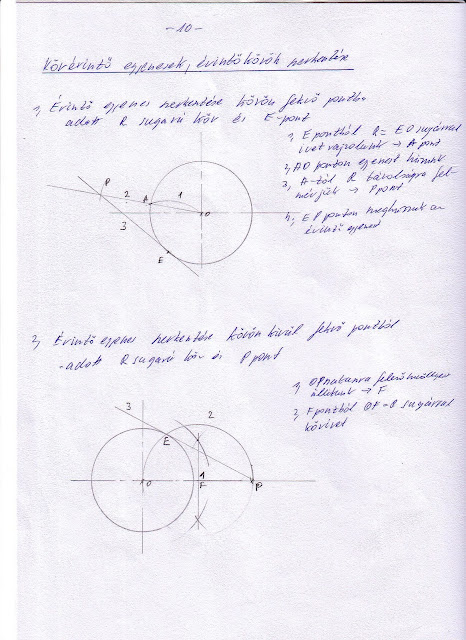 -10-
Körérintő egyenesek, érintőkörök szerkesztése
1, Érintő egyenes szerkesztése körön fekvő pontba
adott R sugarú kör és E-pont
1, E pontból R=EO sugárral
ívet rajzolunk → A pont
2, AO ponton egyenest húzunk
3, A-tól R távolságra fel-
mérjük → P pont
4, EP ponton meghúzzuk az
érintő egyenest
P
2
A
1
3
O
E
2, Érintő egyenes szerkesztése körön kívül fekvő pontból
-adott R sugarú kör és P pont
1, OP szakaszra felező merőlegest
állítunk → F
2, F pontból OF=R sugárral
körívet
3
2
E
1
O
F
P